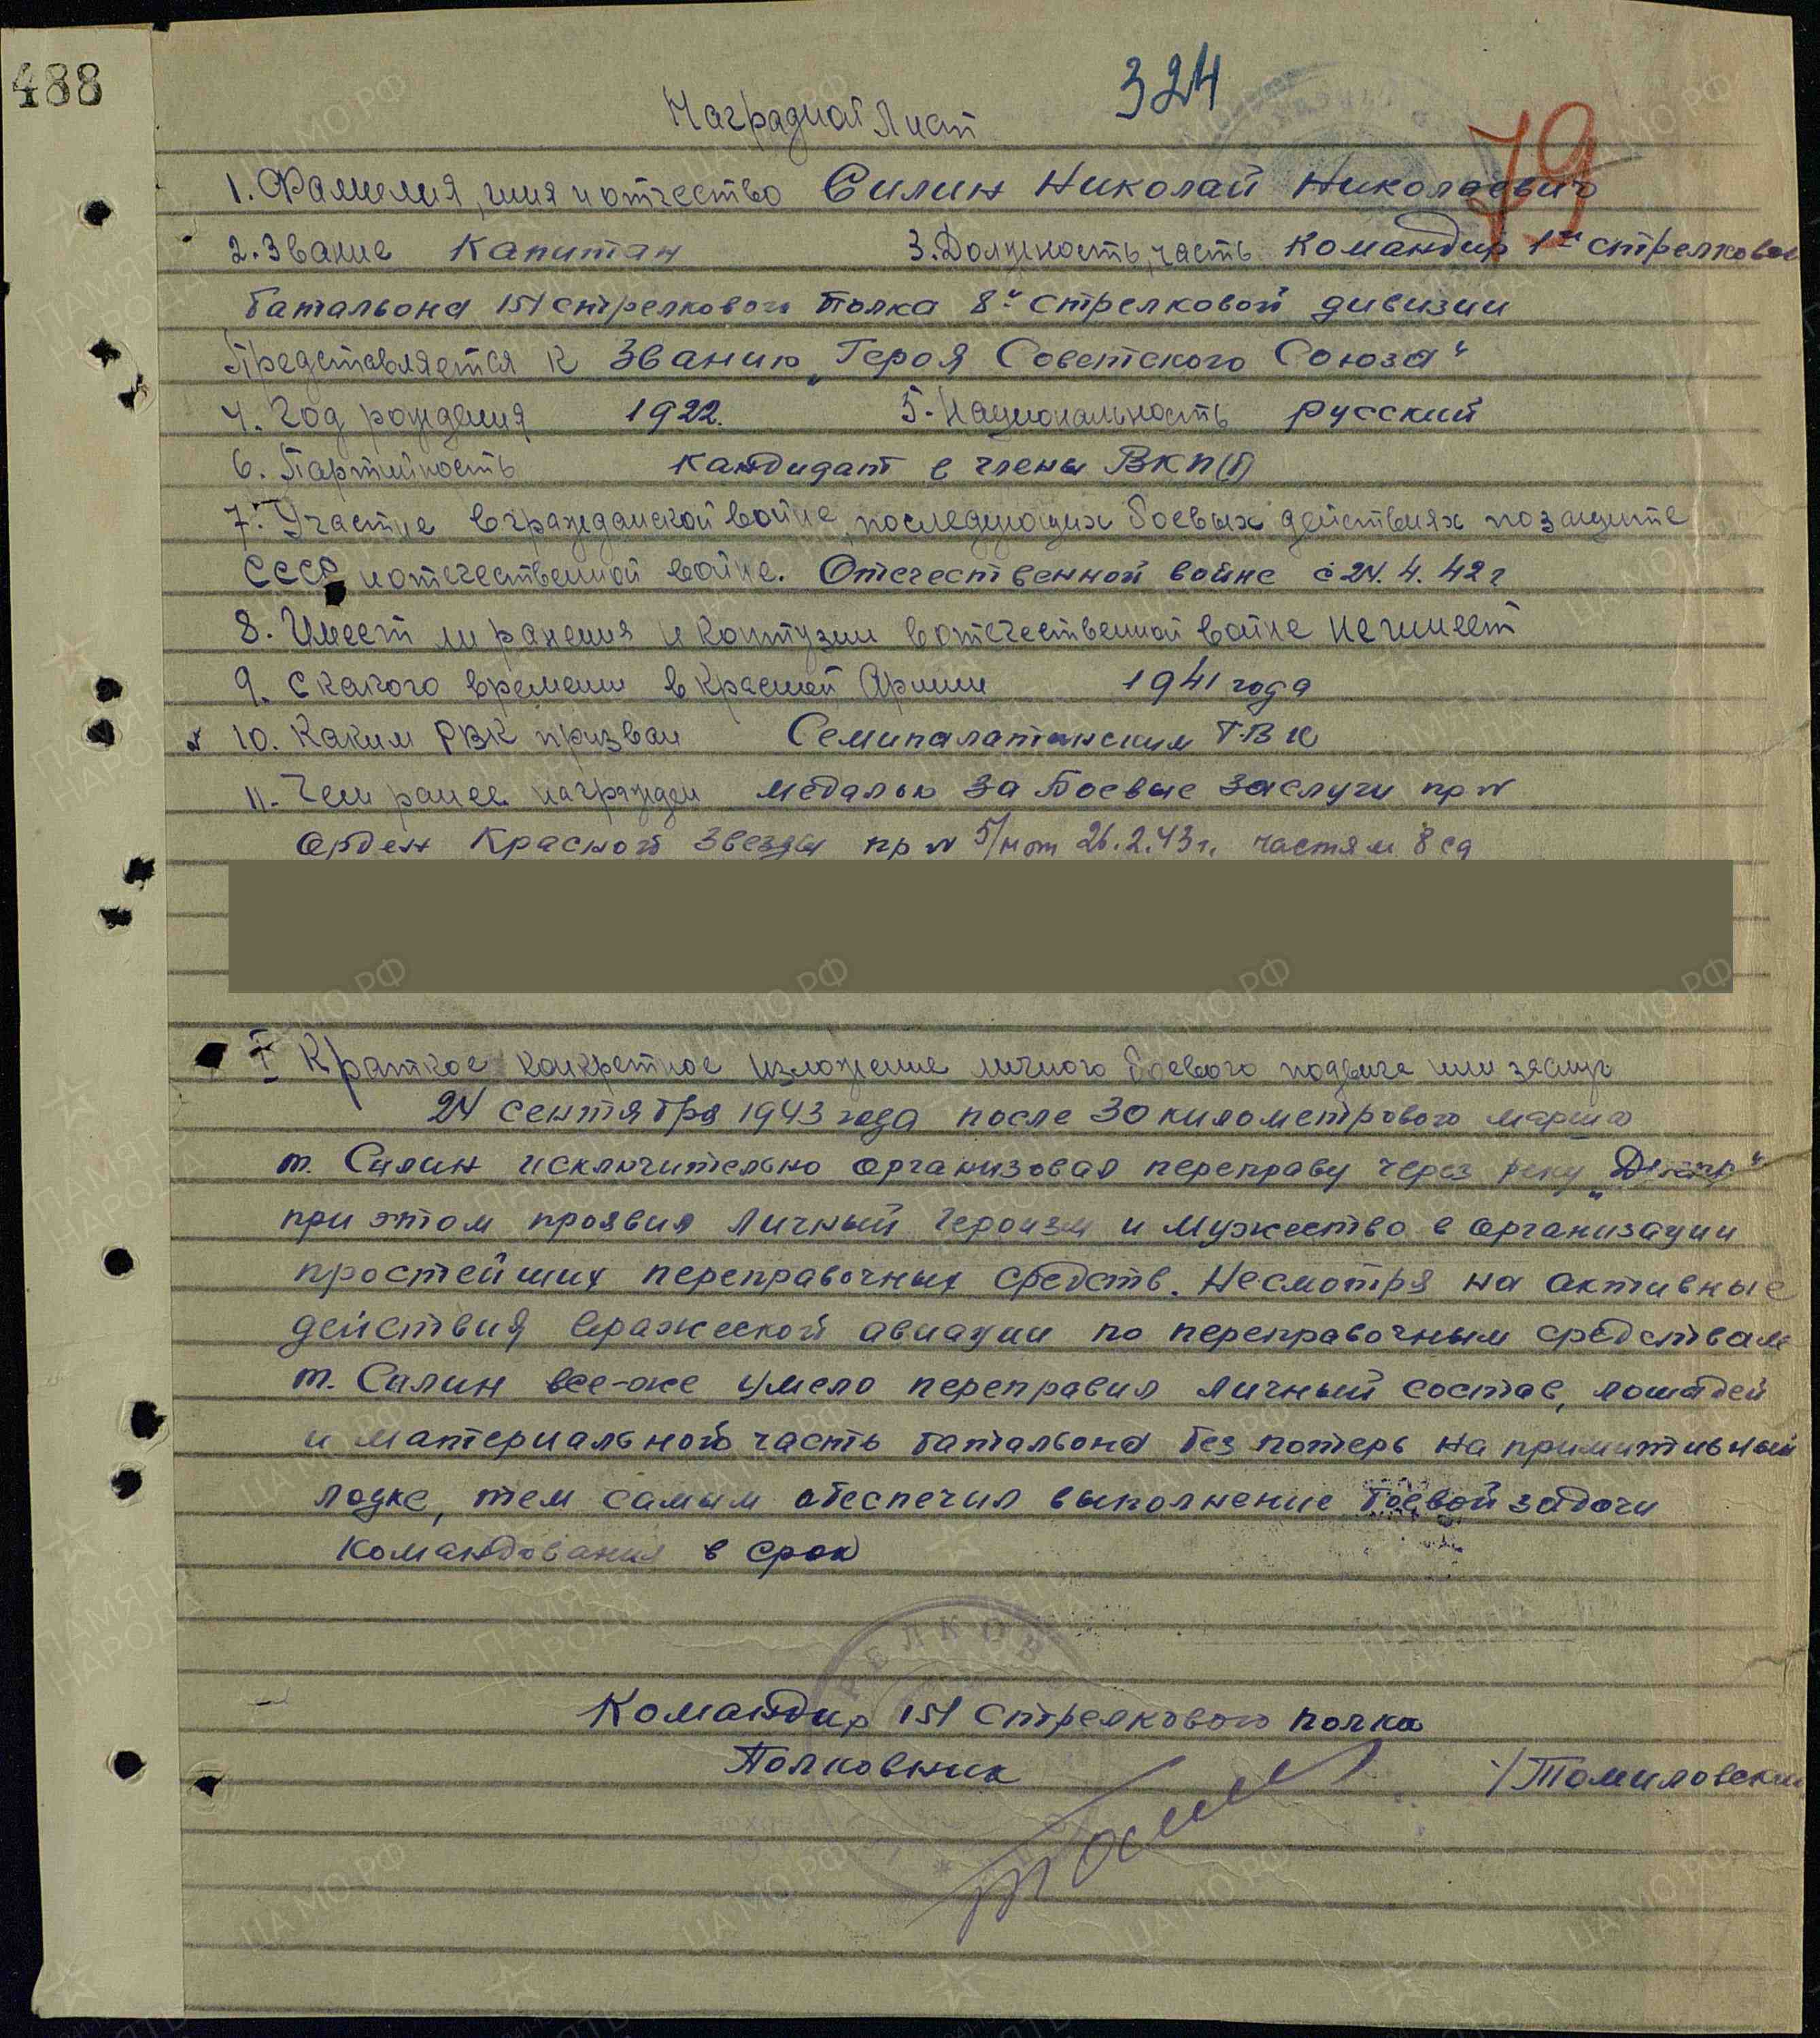 488
324
79
Наградной Лист
1. Фамилия, имя и отчество Силин Николай Николаевич
2. Звание Капитан 3. Должность, часть Командир 1го стрелковог
батальона 151 стрелкового полка 8й стрелковой дивизии
Представляется к Званию „Героя Советского Союза"
4. Год рождения 1922. 5. Национальность русский
6. Партийность кандидат в члены ВКП(б)
7. Участие в гражданской войне, последующих боевых действиях по защите
СССР и отечественной войне. Отечественной войне с 24.4.42 г
8. Имеет ли ранения и контузии в отечественной войне не имеет
9. С какого времени в Красной Армии 1941 года
10. Каким РВК призван Семипалатинским ГВК
11. Чем ранее награжден медалью за Боевые заслуги пр №
Орден Красной Звезды пр № б/н от 26.2.43 г. частям 8 сд
I Краткое конкретное изложение личного боевого подвига или заслуг
24 сентября 1943 года после 30 километрового марша
т. Силин исключительно организовал переправу через реку „Днепр"
при этом проявил личный героизм и мужество в организации
простейших переправочных средств. Несмотря на активные
действия вражеской авиации по переправочным средствам
т. Силин все-же умело переправил личный состав, лошадей
и материальной часть батальона без потерь на примитивный
лодке, тем самым обеспечил выполнение боевой задачи
командования в срок
Командир 151 стрелкового полка
Полковник /Томиловский